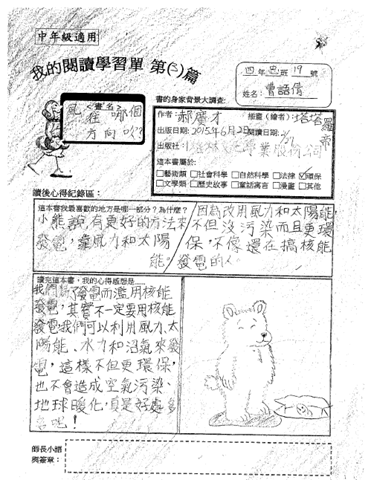 中年級適用
我的閱讀學習單 第(二)篇
四年 班 19 號
姓名：曾語
<書名>
風往哪個
方向吹？
書的身家背景大調查:
作者：郝廣才
插畫(繪者)：塔塔羅帝
出版日期：2015年6月2日
閱讀日期：
出版社：
股份公司
這本書屬於：
□藝術類 □社會科學 □自然科學 □法律 ☑環保
□文學類 □歷史故事 □童話寓言 □漫畫 □其他
讀後心得紀錄區：
這本書我最喜歡的地方是哪一部分？為什麼？
小熊說有更好的方法來
發電，靠風力和太陽
能發電的
因為改用風力和太陽能,
不但沒污染而且更環
保,不像還在搞核能
讀完這本書，我的心得感想是……
我們為了發電而濫用核能
發電,其實不一定要用核能
發電我們可以利用風力、太
陽能、水力和沼氣來發
電,這樣不但更環保,
也不會造成空氣污染、
地球暖化,真是好處多
多呢!
師長小語
與簽章：